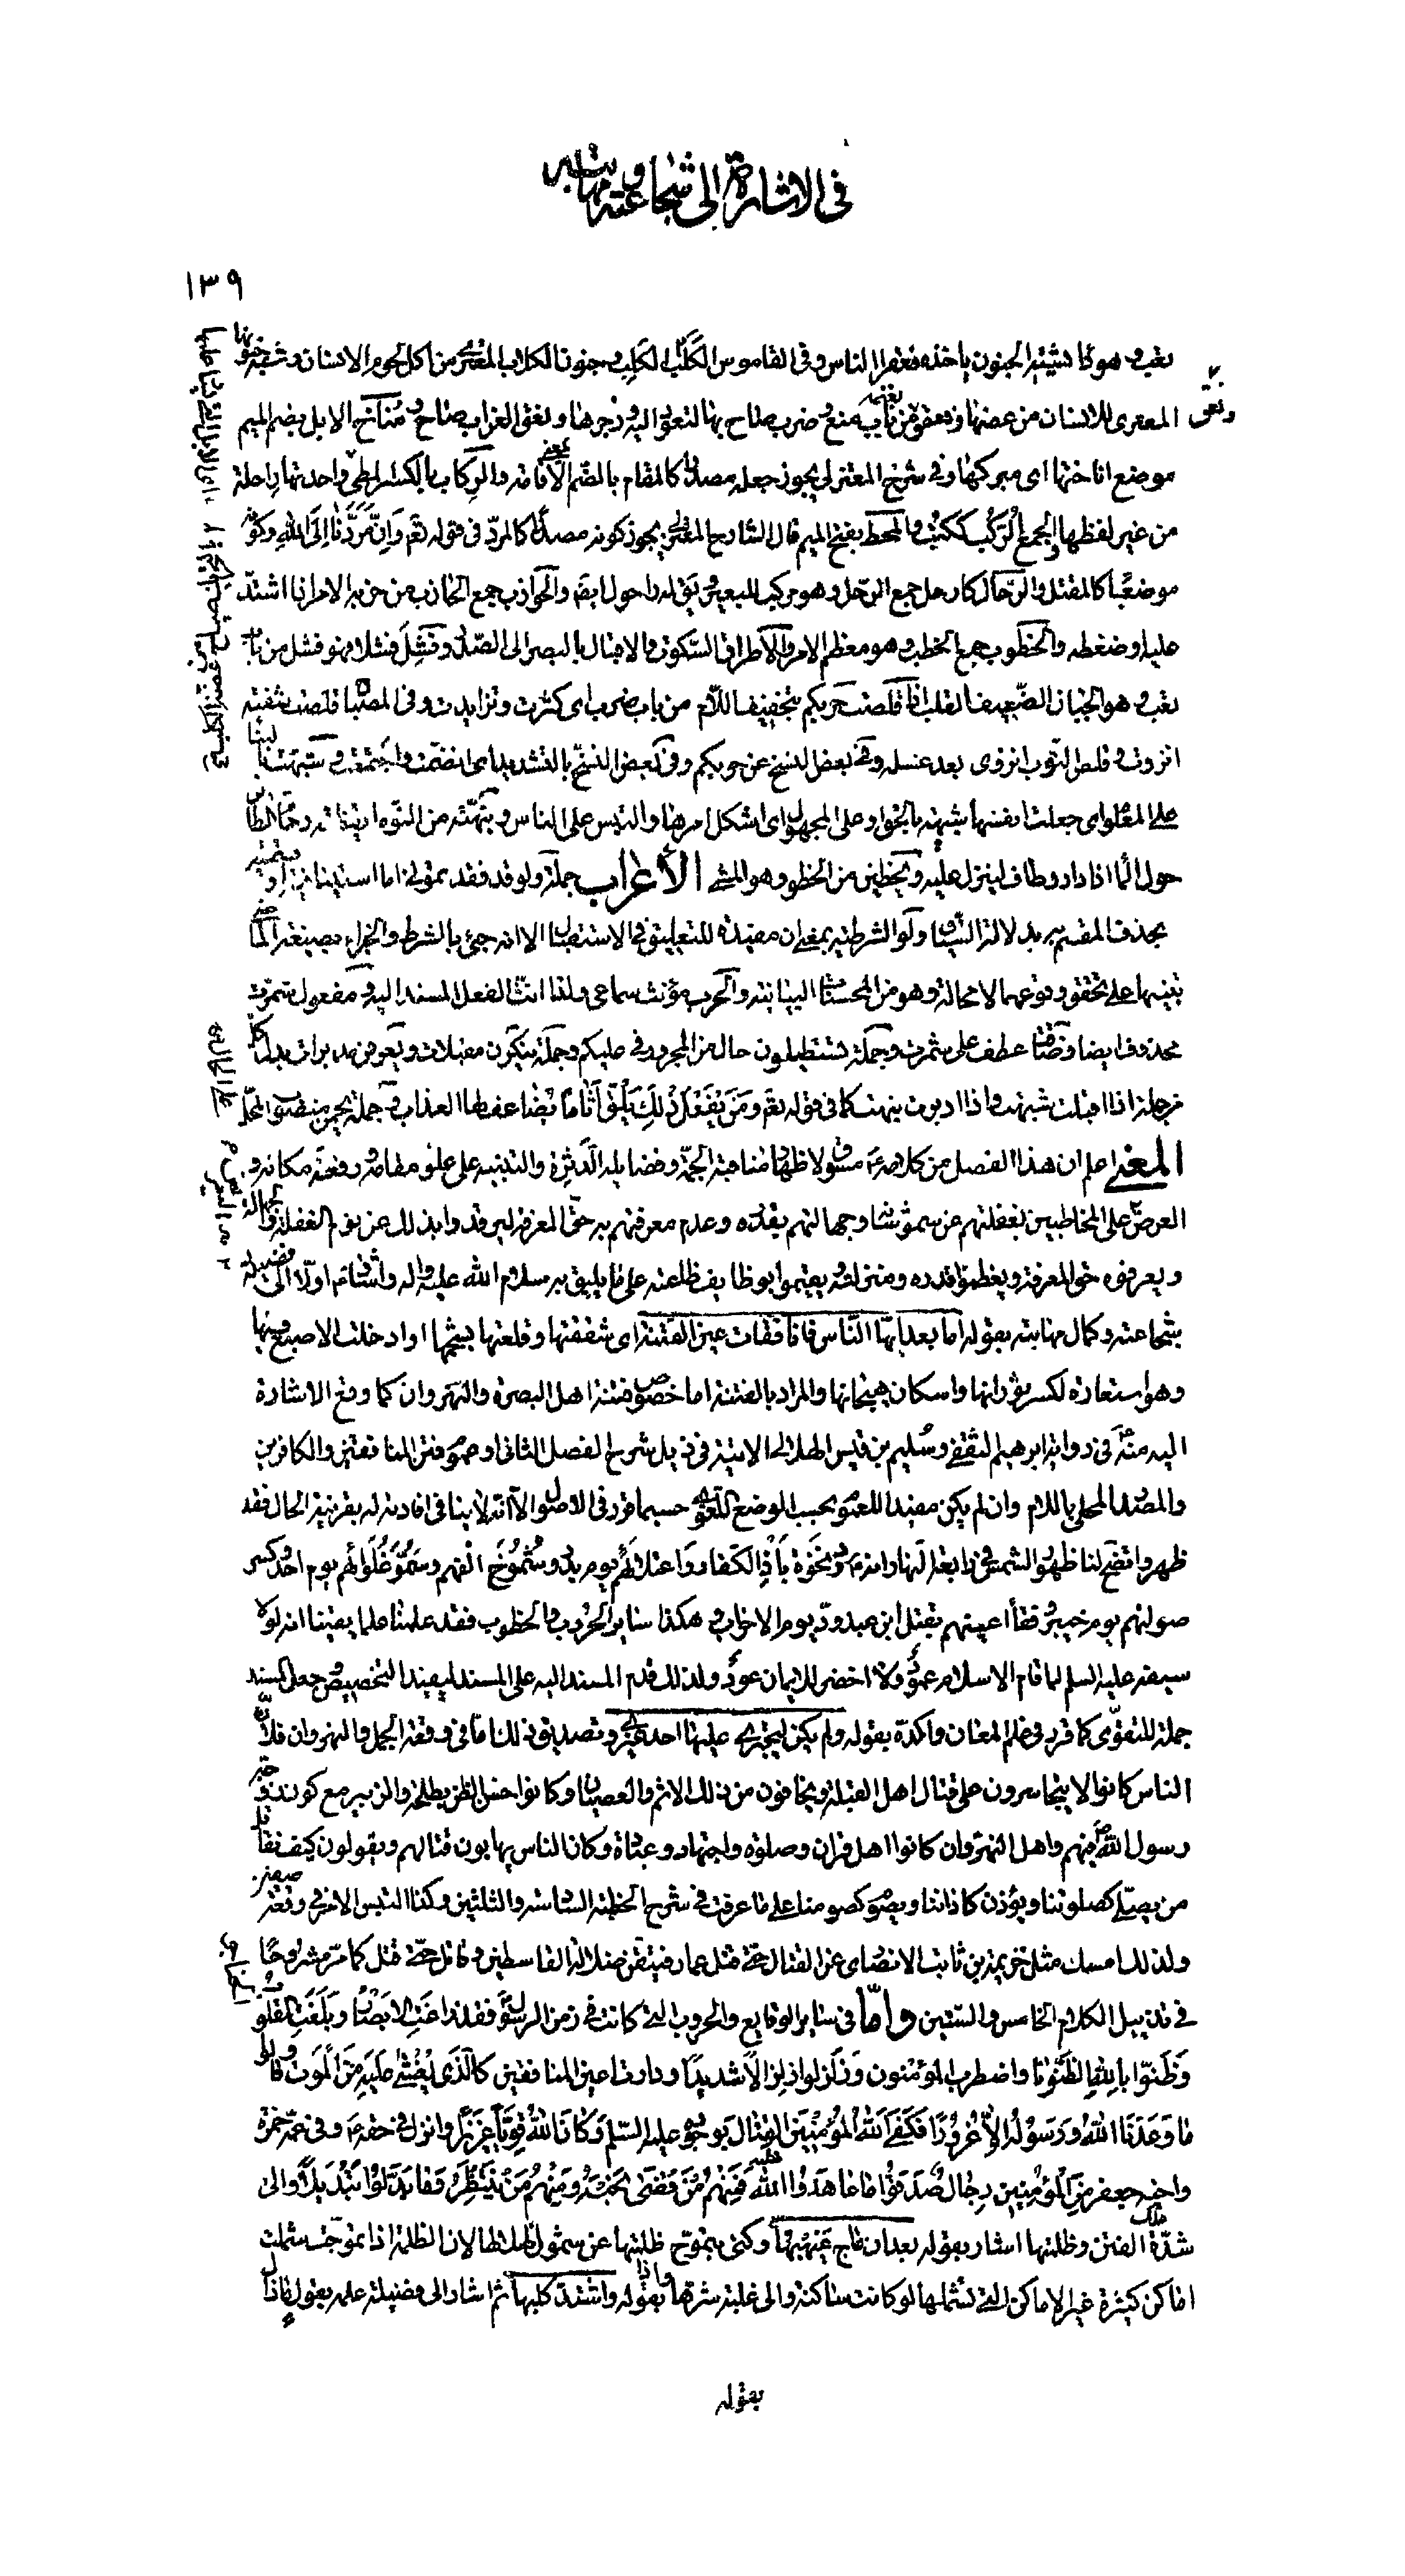 فى الاشارة الى شجاعته و مهابته
١٣٩
تعب و هو داء يشبه الجنون ياخذه فيعقر الناس و فى القاموس الكَلَب و جنون الكلاب المعترى من اكل لحوم الانسان و شبه جنونها
المعترى للانسان من عضها و نعق من باب منع و ضرب صاح بها لتعود اليه و زجرها و نعق الغراب صاح و مُناخ الابل بضم الميم
موضع اناختها اى مبركها و فى شرح المعتزلى يجوز جعله مصدرا كالمقام بالضم الاقامة و الرِكاب بالكسر المطىّ واحدتها راحلة
من غير لفظها و الجمع الرُكُب ككتب و المحط بفتح الميم قال الشارح المعتزلى يجوز كونه مصدرا كالمردّ فى قوله تعم وَاِنَّ مَرَدَّنا اِلَى اللهِ و كونه
موضعا كالمقتل و الرحال كارحل جمع الرحل و هو مركب للبعير و يق له راحول ايضا و الحوازب جمع الحازب من حزبه الامر اذا اشتدّ
عليه او ضغطه و الخطوب جمع الخطب و هو معظم الامر و الاطراق السكوت و الاقبال بالبصر الى الصدر و فَشِلَ فشلا فهو فشل من باب
تعب و هو الجبان الضعيف القلب و قلصت حربكم بتخفيف اللام من باب ضرب اى كثرت و تزايدت و فى المصباح قلصت شفته
انزوت و قلص الثوب انزوى بعد غسله و فى بعض النسخ عن حربكم و فى بعض النسخ بالتشديد اى انضمت و اجتمعت و شبهت
على المعلوم اى جعلت انفسها شبيهة بالحق او على المجهول اى اشكل امرها و التبس على الناس و نبهته من النوم ايقظته و حام الطائر
حول الماء اذا دار و طاف لينزل عليه و يخطين من الخطو و هو المشى الأعراب جملة و لو قد فقدتمونى اما استينافية او قسمية
بحذف المقسم به بدلالة السياق و لو الشرطية بمعنى ان مفيدة للتعليق فى الاستقبال الا انه جئ بالشرط و الجزاء بصيغة الماضى
تنبيها على تحقق وقوعهما لا محالة و هو من المحسنات البيانية و الحرب مؤنث سماعى و لذا انث الفعل المسند اليه و مفعول شمرت
محذوف ايضا و ضاقت عطف على شمرت و جملة تستطيلون حال من المجرور فى عليكم و جملة ينكرن مقبلات و يعرفن مدبرات بدل كل
من جملة اذا اقبلت شبهت و اذا ادبرت نبهت كما فى قوله تعم وَمَنْ يَفْعَلْ ذلِكَ يَلْقَ اَثاماً يُضاعف لها العذاب و جملة يحمن منصوبة المحل
المعنى اعلم ان هذا الفصل من كلامه ع مسوق لاظهار مناقبه الجمة و فضايله الدثرة و التنبيه على علو مقامه و رفعة مكانه و
العرض على المخاطبين بغفلتهم عن سمو شانه و جهالتهم بقدره و عدم معرفتهم به حق المعرفة ليرقدوا بذلك عن نوم الغفلة و الجهالة
و يعرفوه حق المعرفة و يعظموا قدره و منزلته و يقيموا بوظايف طاعته على ما يليق به سلام الله عليه و آله و اشار اولا الى فضيلة
شجاعته و كمال مهابته بقوله اما بعد ايها الناس فانا فقأت عين الفتنة اى شققتها و قلعتها بشحمها او ادخلت الاصبع فيها
و هو استعارة لكسر ثورانها و اسكان هيجانها و المراد بالفتنة اما خصوص فتنة اهل البصرة و النهروان كما وقع الاشارة
اليه منه فى رواية ابرهيم الثقفى و سليم بن قيس الهلالى الاتية فى ذيل شرح الفصل الثانى او عموم فتن المنافقين و الكافرين
و المفرد المحلى باللام و ان لم يكن مفيدا للعموم بحسب الوضع اللغوى حسبما قرر فى الاصول الا انه لا ينافى افادته له بقرينة الحال فقد
ظهر و اتضح لنا ظهور الشمس فى رابعة النهار انه ع ردّ نخوة باذٍ الكفار و اعتلائهم يوم بدر و شموخ انفهم و سموّ غلوائهم يوم احد و كسر
صولتهم يوم خيبر و فقأ اعينهم بقتل ابن عبدودّ يوم الاحزاب و هكذا ساير الحروب و الخطوب فقد علمنا علما يقينا انه لولا
سيفه عليه السلم لما قام للاسلام عمود و لا اخضر للايمان عود و لذلك قدم المسند اليه على المسند ليفيد التخصيص و جعل المسند
جملة للتقوى كما قرر فى علم المعان و اكده بقوله و لم يكن ليجترئ عليها احد غيرى و تصديق ذلك امّا فى وقعة الجمل و النهروان فلأنّ
الناس كانوا لا يتجاسرون على قتال اهل القبلة و يخافون من ذلك الاثم و العصيان و كانوا حسن الظن بطلحة و الزبير مع كون زوجة
رسول الله فيهم و اهل النهروان كانوا اهل قران و صلوة و اجتهاد و عبادة و كان الناس يهابون قتالهم و يقولون كيف نقاتل
من يصلى كصلوتنا و يؤذن كاذاننا و يصوم كصومنا على ما عرفت فى شرح الخطبة السادسة و الثلثين و كذا التبس الامر فى وقعة صفين
و لذلك امسك مثل خزيمة بن ثابت الانصارى عن القتال حتى قتل عمار فتيقن ضلالة القاسطين و قاتل حتى قتل كما مر مشروحا
فى تذييل الكلام الخامس و الستين و امّا فى ساير الوقايع و الحروب التى كانت فى زمن الرسول فقد زاغت الابصار و بلغت القلوب الحناجر
وَظَنّوا بِاللهِ الظّنونا و اضطرب المؤمنون وَ زُلزِلوا زِلزالاً شديداً و دارت اعين المنافقين كالّذى يُغشى عليه مِنَ الموت و قالوا
ما وَعَدَنَا اللهُ وَ رَسُولُهُ اِلّا غُرُوراً فَكَفَى اللهُ المُؤمِنينَ القتالَ بوجوده عليه السلم وَ كانَ اللهُ قوياً عَزيزاً و انزل فى حقه ع و فى عمه حمزة
و اخيه جعفر مِنَ المُؤمِنينَ رِجالٌ صَدَقُوا ما عاهَدُوا اللهَ عليه فَمِنهُم مَن قَضى نَحبَهُ وَ مِنهُم مَن يَنتَظِرُ وَ ما بَدَّلُوا تَبديلاً و الى
شدة تلك الفتن و ظلمتها اشار بقوله بعد ان ماج غيهبها و كنى بتموج ظلمتها عن شمول ظلالها لان الظلمة اذا تموجت شملت
اماكن كثيرة غير الاماكن التى تشملها لو كانت ساكنة و الى غلبة شرها و اذاها بقوله و اشتدّ كلبها ثم اشار الى فضيلة علمه بقوله
بقوله